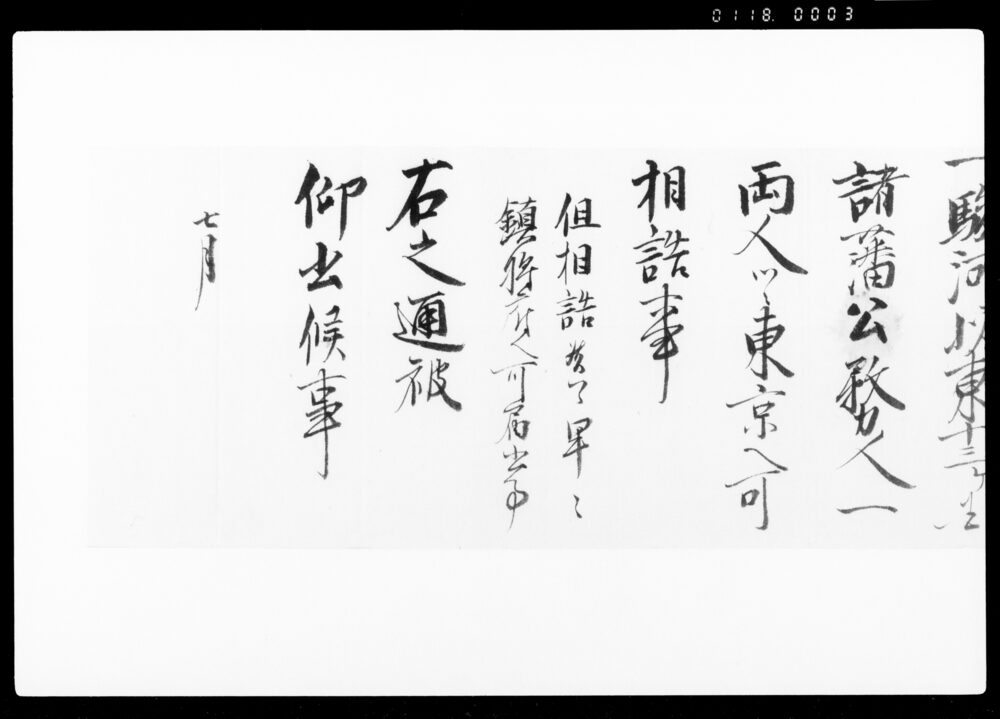 0118.0003
一駿河以東十三ヶ国
諸藩公務人一
両人ツヽ東京へ可
相詰事
但相詰候ハヽ早々
鎮将府へ可届出事
右之通被
仰出候事
七月